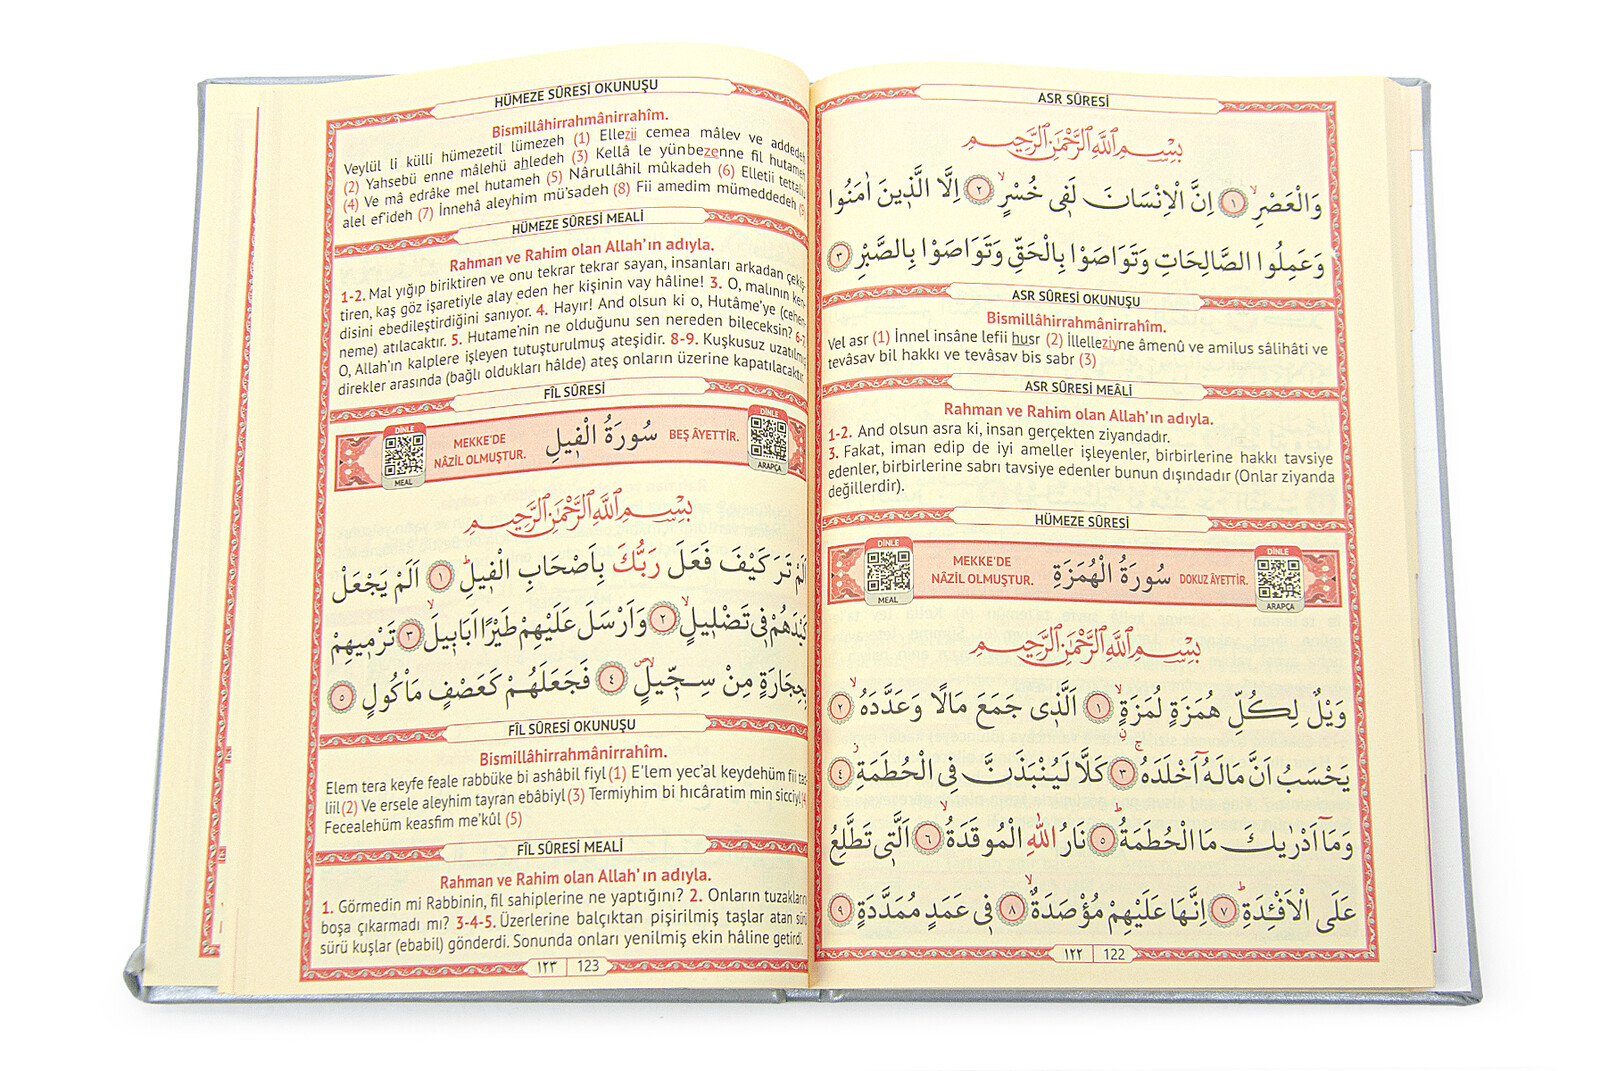 ASR SÛRESİ
بِسْمِ اللّٰهِ الرَّحْمٰنِ الرَّحِيمِ
وَالْعَصْرِۙ ﴿١﴾ اِنَّ الْاِنْسَانَ لَف۪ي خُسْرٍۙ ﴿٢﴾ اِلَّا الَّذ۪ينَ اٰمَنُوا
وَعَمِلُوا الصَّالِحَاتِ وَتَوَاصَوْا بِالْحَقِّ وَتَوَاصَوْا بِالصَّبْرِ ﴿٣﴾
ASR SÛRESİ OKUNUŞU
Bismillâhirrahmânirrahîm.
Vel asr (1) İnnel insâne lefii husr (2) İllelleziyne âmenû ve amilus sâlihâti ve
tevâsav bil hakkı ve tevâsav bis sabr (3)
ASR SÛRESİ MEÂLİ
Rahman ve Rahim olan Allah'ın adıyla.
1-2. And olsun asra ki, insan gerçekten ziyandadır.
3. Fakat, iman edip de iyi ameller işleyenler, birbirlerine hakkı tavsiye
edenler, birbirlerine sabrı tavsiye edenler bunun dışındadır (Onlar ziyanda
değillerdir).
HÜMEZE SÛRESİ
DİNLE MEAL MEKKE'DE NÂZİL OLMUŞTUR. سُورَةُ الْهُمَزَةِ DOKUZ ÂYETTİR. DİNLE ARAPÇA
بِسْمِ اللّٰهِ الرَّحْمٰنِ الرَّحِيمِ
وَيْلٌ لِكُلِّ هُمَزَةٍ لُمَزَةٍۙ ﴿١﴾ اَلَّذ۪ي جَمَعَ مَالًا وَعَدَّدَهُۙ ﴿٢﴾
يَحْسَبُ اَنَّ مَالَهُٓ اَخْلَدَهُۚ ﴿٣﴾ كَلَّا لَيُنْبَذَنَّ فِي الْحُطَمَةِۘ ﴿٤﴾
وَمَٓا اَدْرٰيكَ مَا الْحُطَمَةُۜ ﴿٥﴾ نَارُ اللّٰهِ الْمُوقَدَةُۙ ﴿٦﴾ اَلَّت۪ي تَطَّلِعُ
عَلَى الْاَفْـِٔدَةِۜ ﴿٧﴾ اِنَّهَا عَلَيْهِمْ مُؤْصَدَةٌۙ ﴿٨﴾ ف۪ي عَمَدٍ مُمَدَّدَةٍ ﴿٩﴾
١٢٢ 122
HÜMEZE SÛRESİ OKUNUŞU
Bismillâhirrahmânirrahîm.
Veylül li külli hümezetil lümezeh (1) Ellezii cemea mâlev ve addedeh
(2) Yahsebü enne mâlehü ahledeh (3) Kellâ le yünbezenne fil hutameh
(4) Ve mâ edrâke mel hutameh (5) Nârullâhil mûkadeh (6) Elletii tettaliu
alel ef'ideh (7) İnnehâ aleyhim mü'sadeh (8) Fii amedim mümeddedeh (9
HÜMEZE SÛRESİ MEALİ
Rahman ve Rahim olan Allah'ın adıyla.
1-2. Mal yığıp biriktiren ve onu tekrar tekrar sayan, insanları arkadan çekiş-
tiren, kaş göz işaretiyle alay eden her kişinin vay hâline! 3. O, malının ken-
disini ebedileştirdiğini sanıyor. 4. Hayır! And olsun ki o, Hutâme'ye (cehen-
neme) atılacaktır. 5. Hutame'nin ne olduğunu sen nereden bileceksin? 6-7.
O, Allah'ın kalplere işleyen tutuşturulmuş ateşidir. 8-9. Kuşkusuz uzatılmış
direkler arasında (bağlı oldukları hâlde) ateş onların üzerine kapatılacaktır.
FÎL SÛRESİ
DİNLE MEAL MEKKE'DE NÂZİL OLMUŞTUR. سُورَةُ الْف۪يلِ BEŞ ÂYETTİR. DİNLE ARAPÇA
بِسْمِ اللّٰهِ الرَّحْمٰنِ الرَّحِيمِ
اَلَمْ تَرَ كَيْفَ فَعَلَ رَبُّكَ بِاَصْحَابِ الْف۪يلِۜ ﴿١﴾ اَلَمْ يَجْعَلْ
كَيْدَهُمْ ف۪ي تَضْل۪يلٍۙ ﴿٢﴾ وَاَرْسَلَ عَلَيْهِمْ طَيْرًا اَبَاب۪يلَۙ ﴿٣﴾ تَرْم۪يهِمْ
بِحِجَارَةٍ مِنْ سِجّ۪يلٍۖ ﴿٤﴾ فَجَعَلَهُمْ كَعَصْفٍ مَأْكُولٍ ﴿٥﴾
FÎL SÛRESİ OKUNUŞU
Bismillâhirrahmânirrahîm.
Elem tera keyfe feale rabbüke bi ashâbil fiyl (1) E'lem yec'al keydehüm fii tad-
liil (2) Ve ersele aleyhim tayran ebâbiyl (3) Termiyhim bi hıcâratim min sicciyl (4
Fecealehüm keasfim me'kûl (5)
FÎL SÛRESİ MEALİ
Rahman ve Rahim olan Allah'ın adıyla.
1. Görmedin mi Rabbinin, fil sahiplerine ne yaptığını? 2. Onların tuzakların
boşa çıkarmadı mı? 3-4-5. Üzerlerine balçıktan pişirilmiş taşlar atan sürü
sürü kuşlar (ebabil) gönderdi. Sonunda onları yenilmiş ekin hâline getirdi.
١٢٣ 123